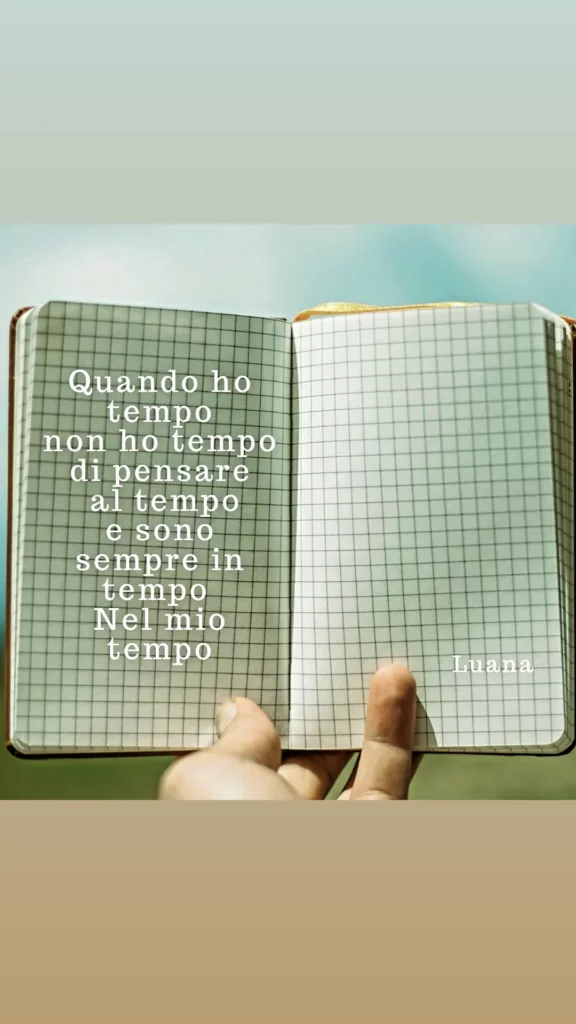 Quando ho
tempo
non ho tempo
di pensare
al tempo
e sono
sempre in
tempo
Nel mio
tempo
Luana